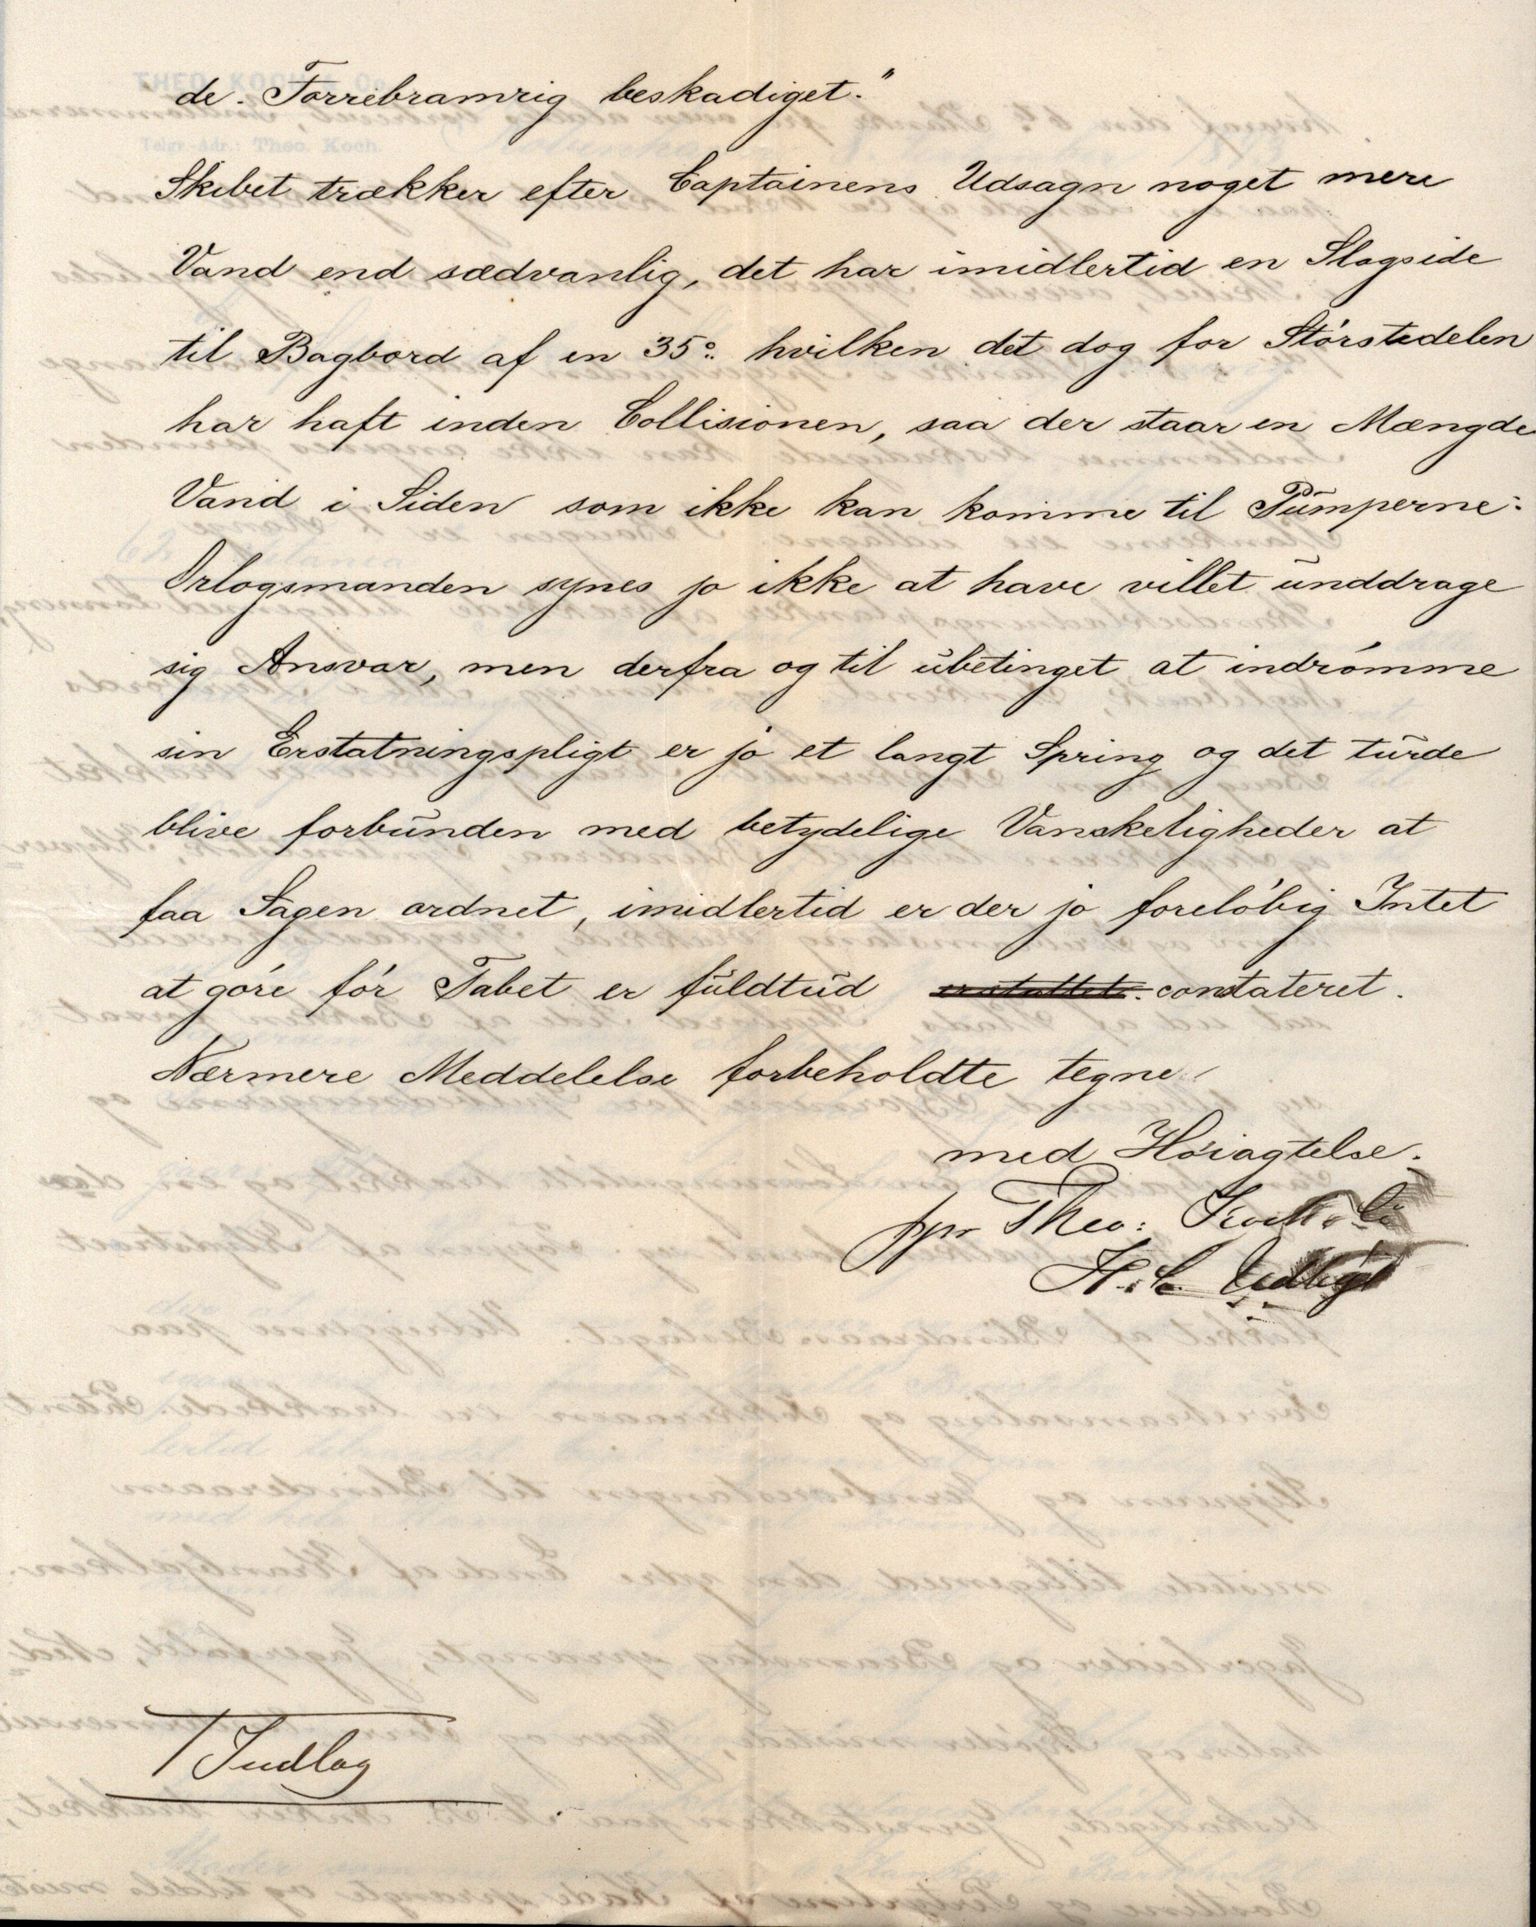 de. Forrebramrig beskadiget."
Skibet trækker efter Captainens Udsagn noget mere
Vand end sædvanlig, det har imidlertid en Slagside
til Bagbord af en 35°. hvilken det dog for Störstedelen
har haft inden Collisionen, saa der staar en Mængde
Vand i Siden som ikke kan komme til Pumperne.
Orlogsmanden synes jo ikke at have villet unddrage
sig Ansvar, men derfra og til ubetinget at indrömme
sin Erstatningspligt er jo et langt Spring og det turde
blive forbunden med betydelige Vanskeligheder at
faa Sagen ordnet, imidlertid er der jo forelöbig Intet
at göre för Tabet er fuldtud constateret.
Nærmere Meddelelse forbeholdte tegne
med Höiagtelse.
ppr Theo: Koch & Co
H. C.
1 Indlag